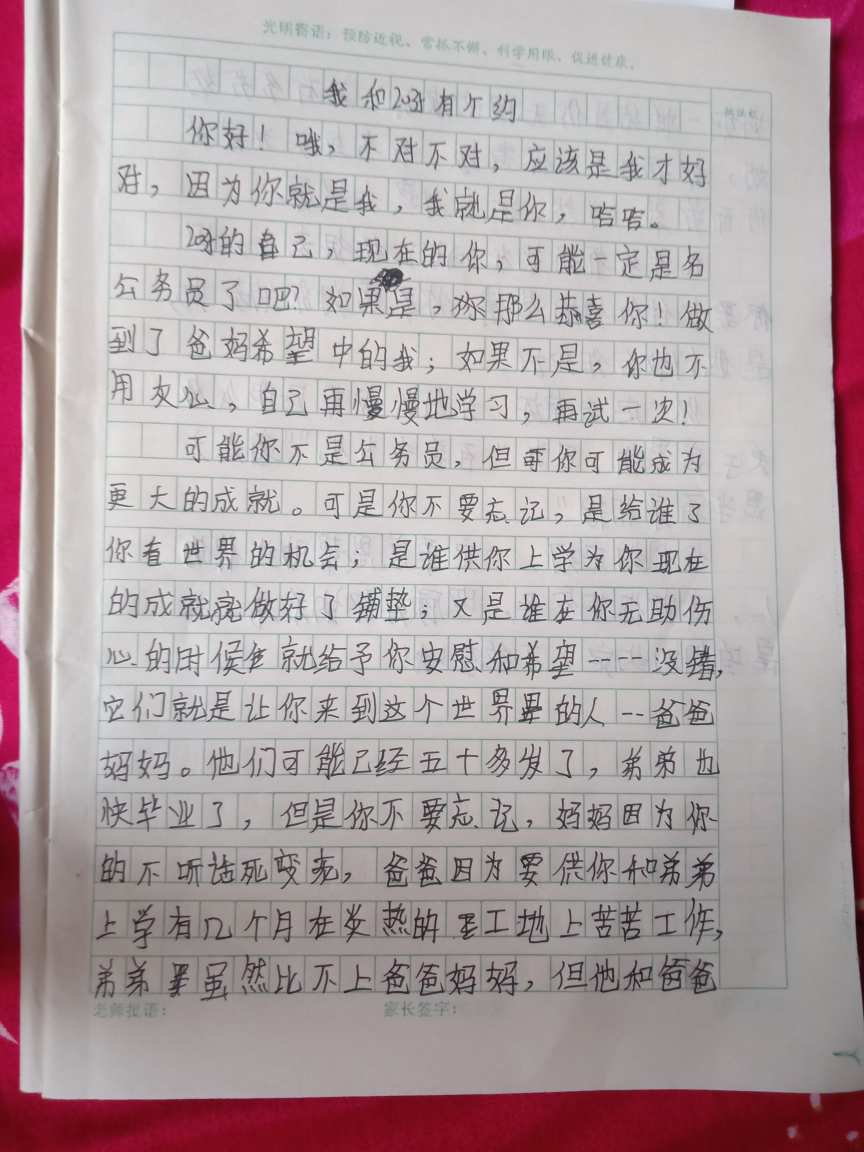 光明寄语：预防近视、常抓不懈、科学用眼、促进健康。
我和20岁有个约
你好！哦，不对不对，应该是我才好
对，因为你就是我，我就是你，哈哈。
20岁的自己，现在的你，可能一定是名
公务员了吧？如果是，你那么恭喜你！做
到了爸妈希望中的我；如果不是，你也不
用灰心，自己再慢慢地学习，再试一次！
可能你不是公务员，但你可能成为
更大的成就。可是你不要忘记，是给谁了
你看世界的机会；是谁供你上学为你现在
的成就就做好了铺垫；又是谁在你无助伤
心的时候就给予你安慰和希望----没错，
它们就是让你来到这个世界的人--爸爸
妈妈。他们可能已经五十多岁了，弟弟也
快毕业了，但是你不要忘记，妈妈因为你
的不听话变老，爸爸因为要供你和弟弟
上学有几个月在炎热的工地上苦苦工作，
弟弟虽然比不上爸爸妈妈，但他和爸爸
老师批语：
家长签字：